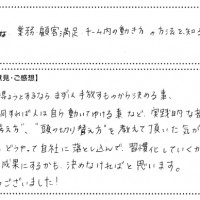 な 業務、顧客満足、チーム内の動き方、の方法を知る
意見・ご感想】
得ようとするなら まず何を手放すものから決める事、
何すれば人は自ら動いてゆける事など、実践的な
考え方"、"頭の切り替え方"を教えて頂いた気が
どうやって自社に落とし込んで、習慣化していくか
成果にするかも、決めなければと思います。
ございました!